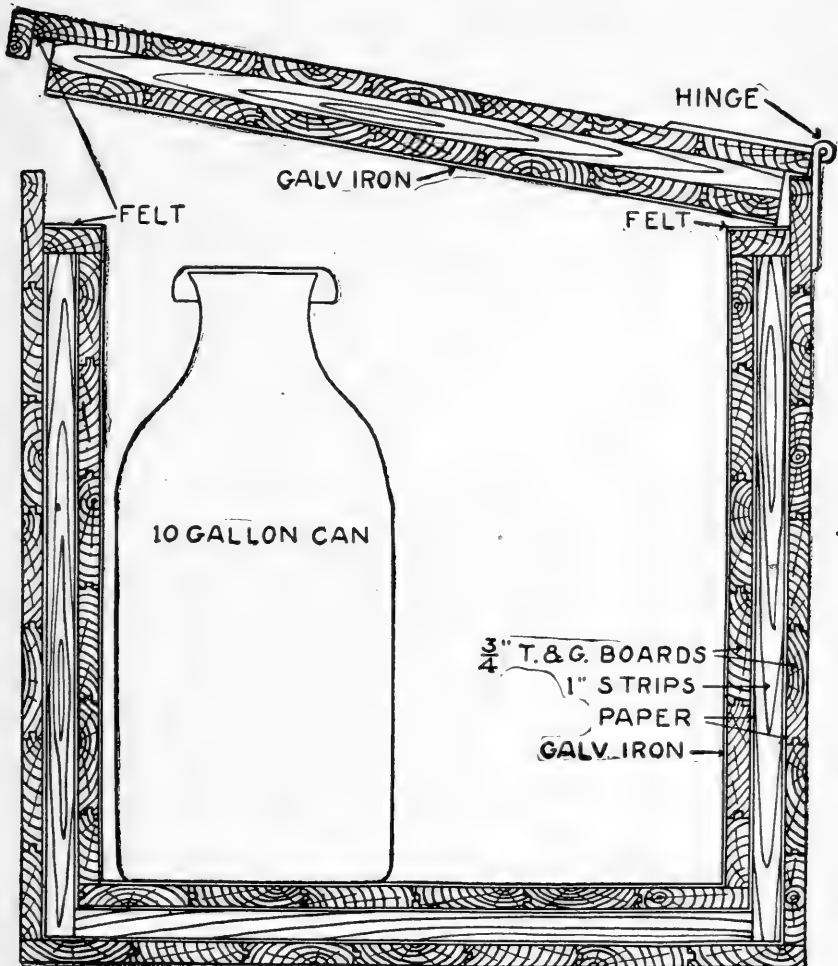 HINGE
GALV. IRON
FELT
FELT
10 GALLON CAN
3/4" T. & G. BOARDS
1" STRIPS
PAPER
GALV. IRON